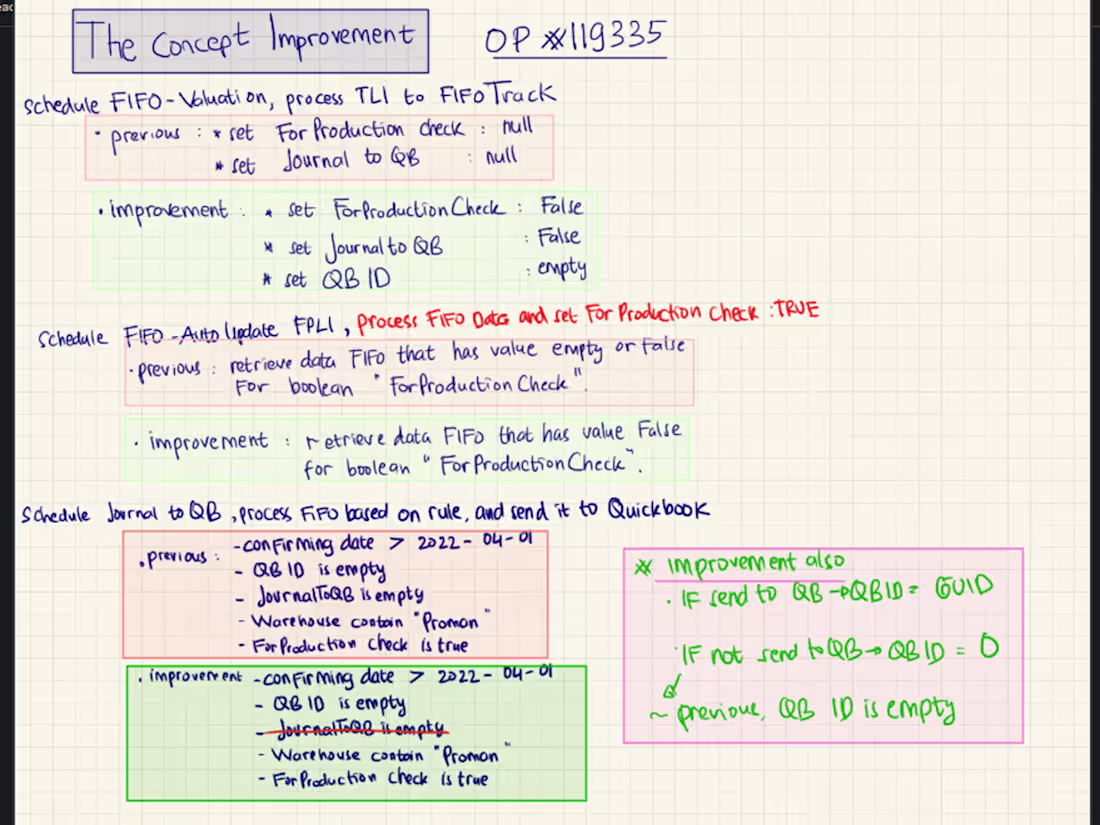 The Concept Improvement OP #119335
Schedule FIFO-Valuation, process TLI to FIFOTrack
• previous : * set For Production check : null
* set Journal to QB : null
• improvement : * set ForProductionCheck : False
* set Journal to QB : False
* set QB ID : empty
Schedule FIFO-Auto Update FPLI, process FIFO Data and set For Production Check : TRUE
• previous : retrieve data FIFO that has value empty or false
For boolean "ForProductionCheck".
• improvement : retrieve data FIFO that has value False
for boolean "ForProductionCheck".
Schedule Journal to QB, process FIFO based on rule, and send it to Quickbook
• previous : - confirming date > 2022-04-01
- QB ID is empty
- JournalToQB is empty
- Warehouse contain "Promon"
- ForProduction check is true
• improvement - confirming date > 2022-04-01
- QB ID is empty
- JournalToQB is empty
- Warehouse contain "Promon"
- ForProduction check is true
* improvement also
• IF send to QB → QBID = GUID
• IF not send to QB → QB ID = 0
~ previous, QB ID is empty